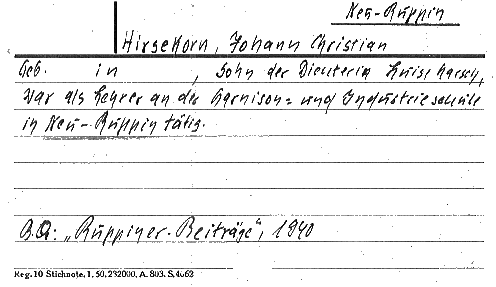 Neu-Ruppin
Hirsekorn, Johann Christian
Geb. in , Sohn der Dieuteria Luise Karsch,
War als Lehrer an der Garnison= und Industrieschule
in Neu-Ruppin tätig.
B.Q: „Ruppiner-Beiträge“, 1940
Reg. 10 Stichnote, 1. 50, 232000, A. 803. S. 4062